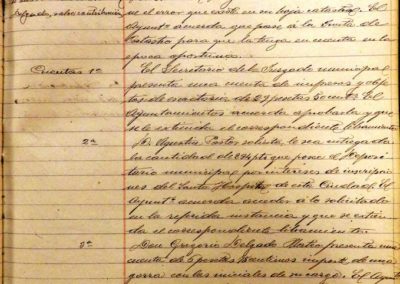 se el error que existe en su hoja catastral. El
Delgado, sobre contribución
Ayuntº acuerda que pase á la Junta de
Catastro para que la tenga en cuenta en la
época oportuna.
Cuentas 1ª
El Secretario del Juzgado municipal
presenta una cuenta de impresos y obje
tos de escritorio de 59 pesetas 50 cents El
Ayuntamiento acuerda aprobarla y que
se le extienda el correspondiente libramiento
2ª
D. Agustin Pastor solicita le sea entregada
la cantidad de 834 pts que pone el Deposi
tario municipal por intereses de inscripcio
nes del Santo Hospital de esta Ciudad. El
Ayuntº acuerda acceder á lo solicitado
en la referida instancia y que se extien
da el correspondiente libramiento.
3ª
Don Gregorio Delgado Mateo presenta una
cuenta de 6 pesetas céntimos importe de una
gorra con las iniciales de su cargo. El Ayuntº